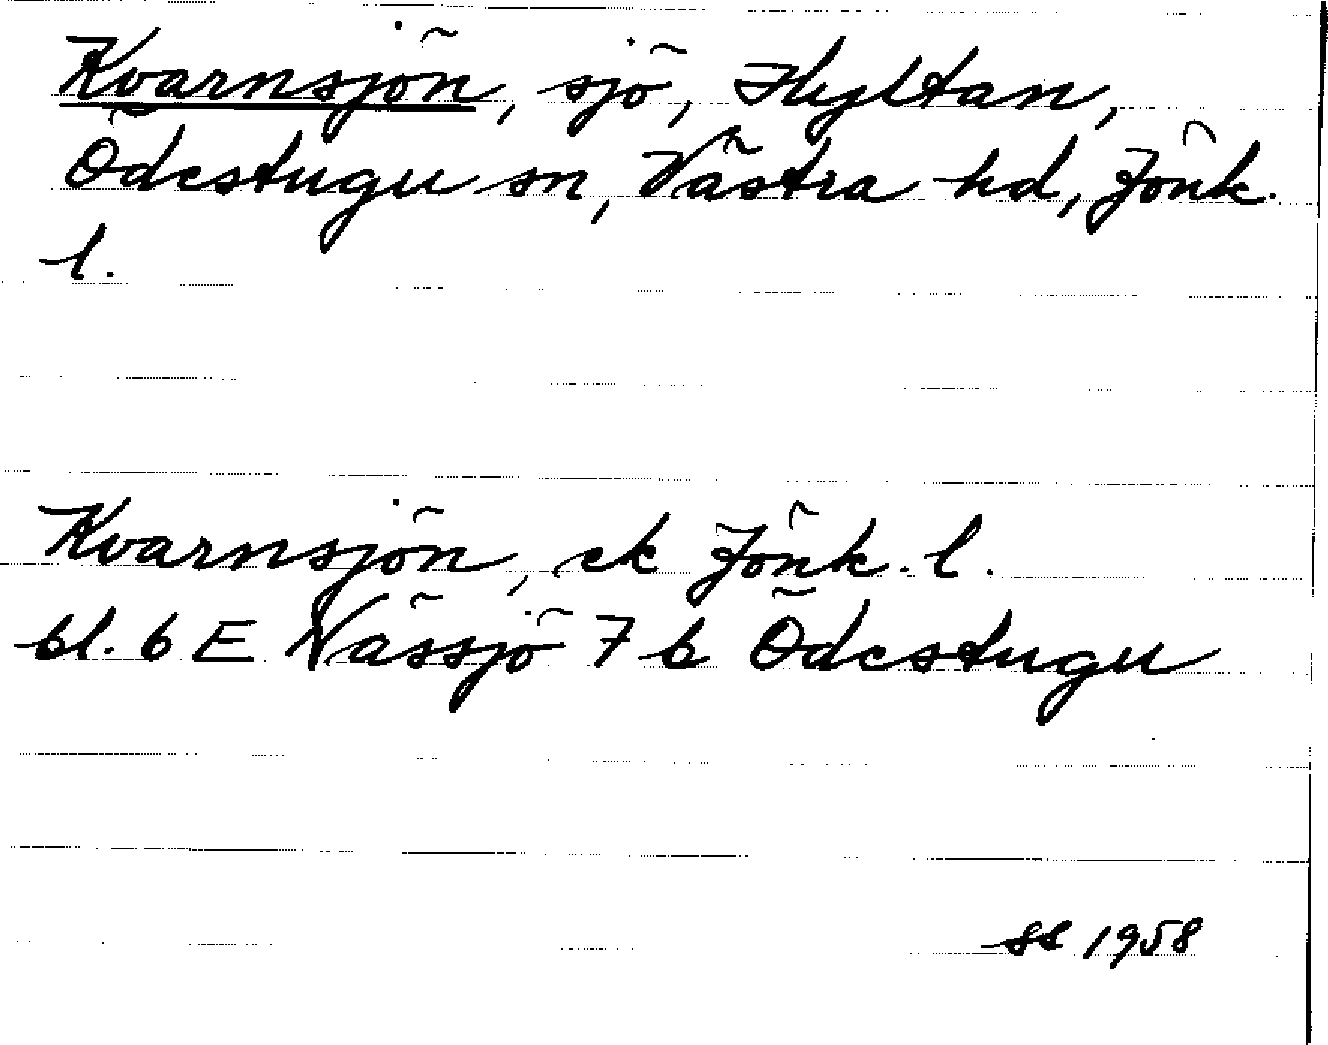 Kvarnsjön, sjö, Hyltan,
Ödestugu sn, Västra hd, Jönk.
l.
Kvarnsjön, ek Jönk. l.
bl. 6 E Nässjö 7 b Ödestugu
SS 1958